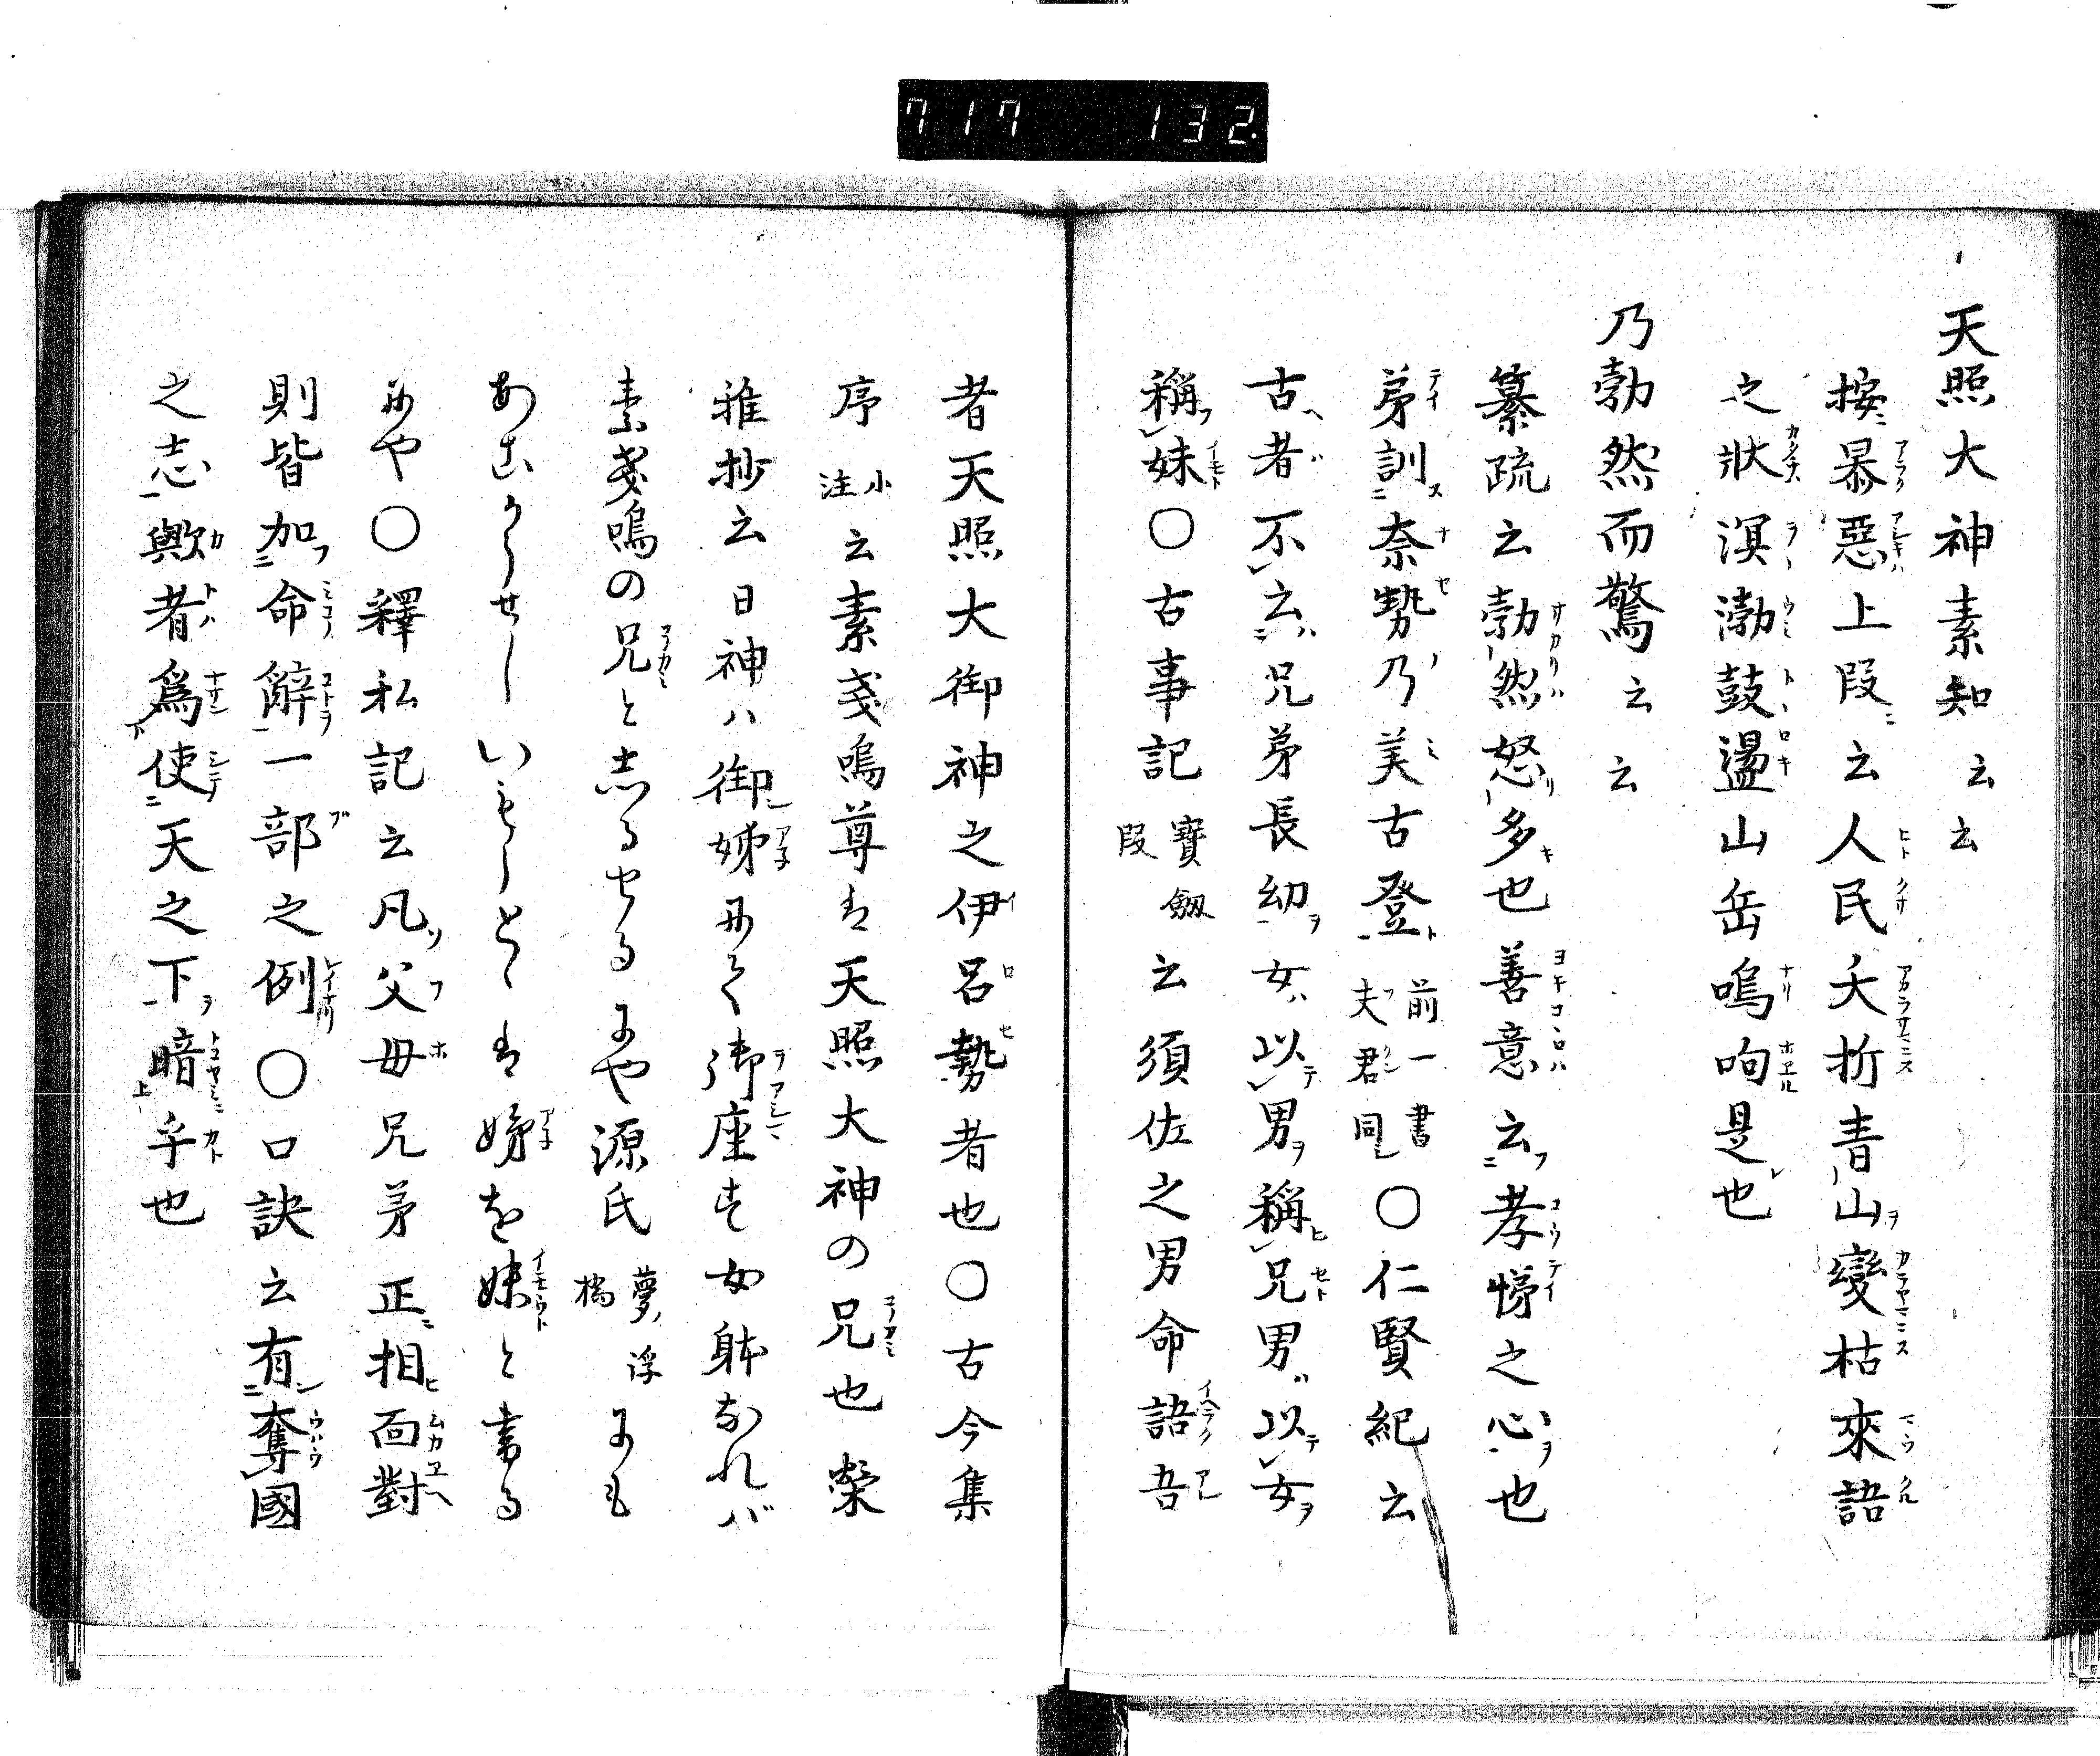 717 132.
天照大神素知云云
按暴惡上段云人民夭折青山變枯來語
之狀溟渤鼓盪山岳鳴呴是也
乃勃然而驚云云
纂疏云勃然怒多也善意云孝悌之心也
弟訓奈勢乃美古登前一書夫君同〇仁賢紀云
古者不云兄弟長幼女以男稱兄男以女
稱妹〇古事記寶劔段云須佐之男命語吾
者天照大御神之伊呂勢者也〇古今集
序小注云素戔嗚尊は天照大神の兄也榮
雅抄云日神ハ御姊にて御座す女躰なれバ
素戔嗚の兄と志るせるにや源氏夢浮橋にも
いもうとは姊を妹と書る
にや〇釋私記云凡父母兄弟正相面對
則皆加命辭一部之例〇口訣云有奪國
之志歟者爲使天之下暗乎也